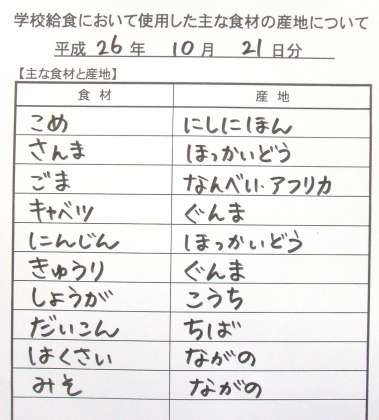 学校給食において使用した主な食材の産地について
平成 26 年 10 月 21 日分
【主な食材と産地】
食材 産地
こめ にしにほん
さんま ほっかいどう
ごま なんべい・アフリカ
キャベツ ぐんま
にんじん ほっかいどう
きゅうり ぐんま
しょうが こうち
だいこん ちば
はくさい ながの
みそ ながの